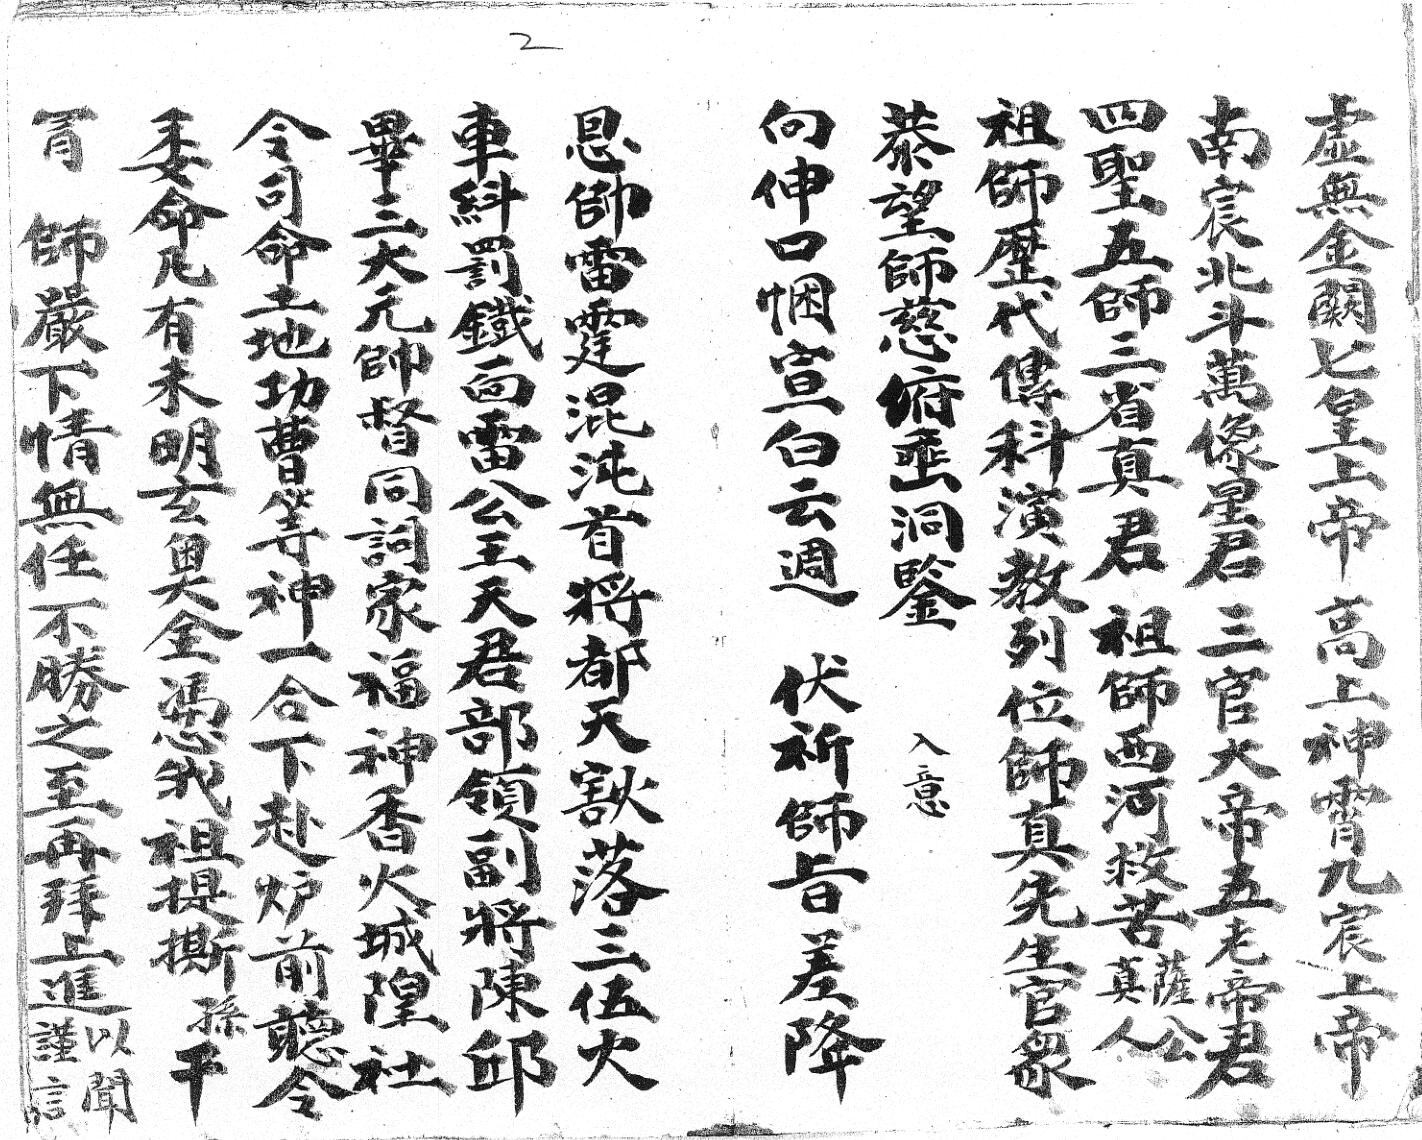 2
虛無金闕七皇上帝 高上神霄九宸上帝
南宸北斗萬像星君 三官大帝五老帝君
四聖五師三省真君 祖師西河救苦薩公真人
祖師歷代傳科演教列位師真先生官衆
恭望師慈俯垂洞鑒 入意
向伸口悃宣白云週 伏祈師旨差降
恩帥雷霆混沌首將都天獻落三伍火
車糾罰鐵面雷公王天君部領副將陳邱
畢三大元帥督同詞家福神香火城隍社
令司命土地功曹等神一合下赴炉前聽令
委命凡有未明玄奧全憑我祖提撕孫平
胥 師嚴下情無任不勝之至再拜上進以聞謹言